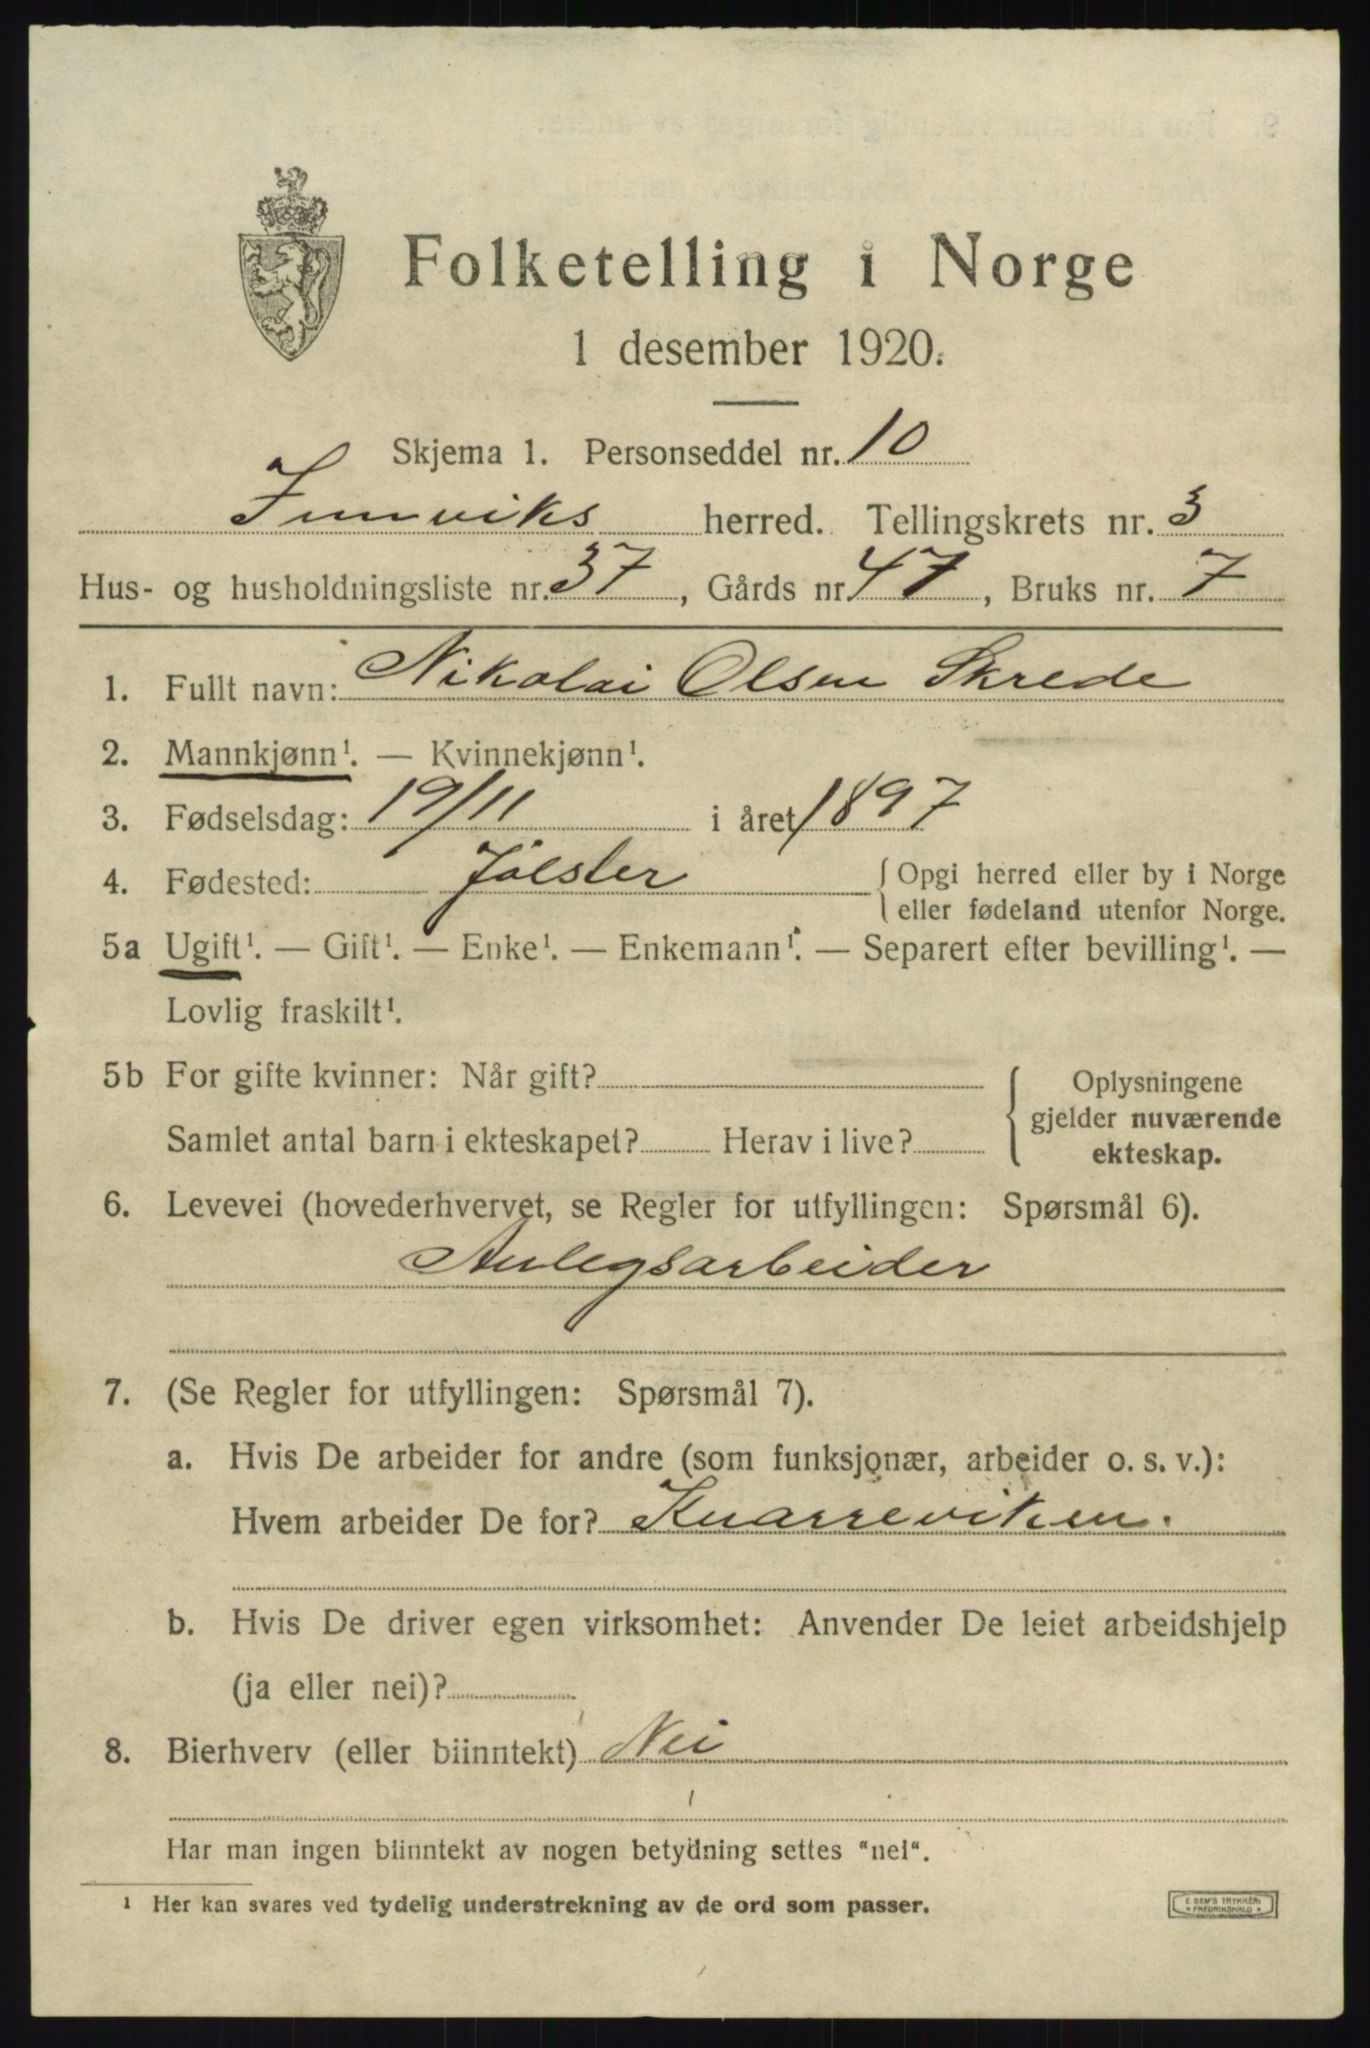 Folketelling i Norge
1 desember 1920.
Skjema 1. Personseddel nr. 10
Innviks herred. Tellingskrets nr. 3
Hus- og husholdningsliste nr. 37, Gårds nr. 47, Bruks nr. 7
1. Fullt navn: Nikolai Olsen Skrede
2. Mannkjønn¹. — Kvinnekjønn¹.
3. Fødselsdag: 19/11 i året 1897
4. Fødested: Jølster { Opgi herred eller by i Norge
eller fødeland utenfor Norge.
5a Ugift¹. — Gift¹. — Enke¹. — Enkemann¹. — Separert efter bevilling¹. —
Lovlig fraskilt¹.
5b For gifte kvinner: Når gift? { Oplysningene
gjelder nuværende
Samlet antal barn i ekteskapet? Herav i live? ekteskap.
6. Levevei (hovederhvervet, se Regler for utfyllingen: Spørsmål 6).
Anlegsarbeider
7. (Se Regler for utfyllingen: Spørsmål 7).
a. Hvis De arbeider for andre (som funksjonær, arbeider o. s. v.):
Hvem arbeider De for? Knarreviken.
b. Hvis De driver egen virksomhet: Anvender De leiet arbeidshjelp
(ja eller nei)?
8. Bierhverv (eller biinntekt) Nei
Har man ingen biinntekt av nogen betydning settes "nei".
¹ Her kan svares ved tydelig understrekning av de ord som passer.
E. SEM'S TRYKKERI
FREDRIKSHALD